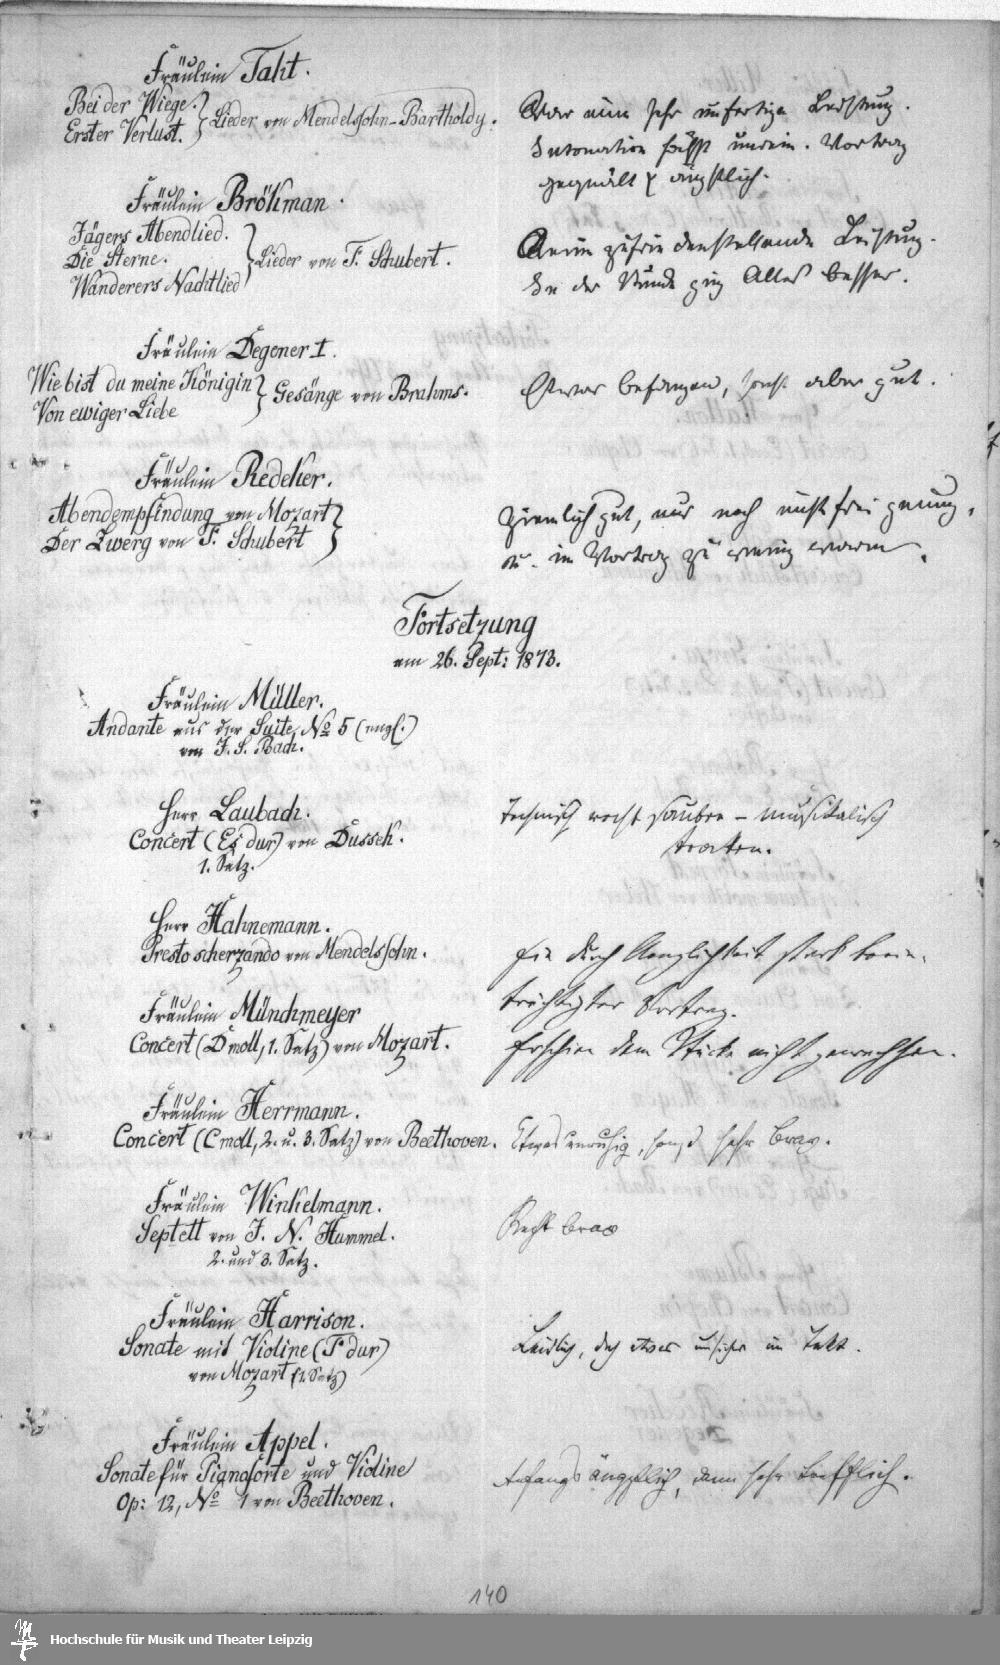 Fräulein Takt.
Bei der Wiege.
Erster Verlust. } Lieder von Mendelssohn-Bartholdy.
War eine sehr unfertige Leistung.
Intonation höchst unrein. Vortrag
gequält & ängstlich.
Fräulein Brökman.
Jägers Abendlied.
Die Sterne.
Wanderers Nachtlied } Lieder von F. Schubert.
Keine zufriedenstellende Leistung.
In der Stunde ging Alles besser.
Fräulein Degener I.
Wie bist du meine Königin
Von ewiger Liebe } Gesänge von Brahms.
Etwas befangen, sonst aber gut.
Fräulein Redeker.
Abendempfindung von Mozart
Der Zwerg von F. Schubert }
Ziemlich gut, nur noch nicht frei genug,
u. im Vortrag zu wenig warm.
Fortsetzung
am 26. Sept: 1873.
Fräulein Müller.
Andante aus der Suite No 5 (engl.)
von J. S. Bach.
Herr Laubach.
Concert (Es dur) von Dussek.
1. Satz.
Technisch recht sauber – musikalisch
trocken.
Herr Hahnemann.
Presto scherzando von Mendelssohn.
Ein durch Aengstlichkeit stark beein-
trächtigter Vortrag.
Fräulein Münchmeyer
Concert (D moll, 1. Satz) von Mozart.
Erschien dem Stücke nicht gewachsen.
Fräulein Herrmann.
Concert (C moll, 2. u. 3. Satz) von Beethoven.
Etwas unruhig, sonst sehr brav.
Fräulein Winkelmann.
Septett von J. N. Hummel.
2. und 3. Satz.
Recht brav
Fräulein Harrison.
Sonate mit Violine (F dur)
von Mozart (1. Satz)
Leidlich, doch etwas unsicher im Takt.
Fräulein Appel.
Sonate für Pianoforte und Violine
Op: 12, No 1 von Beethoven.
Anfangs ängstlich, dann sehr trefflich.
140
Hochschule für Musik und Theater Leipzig